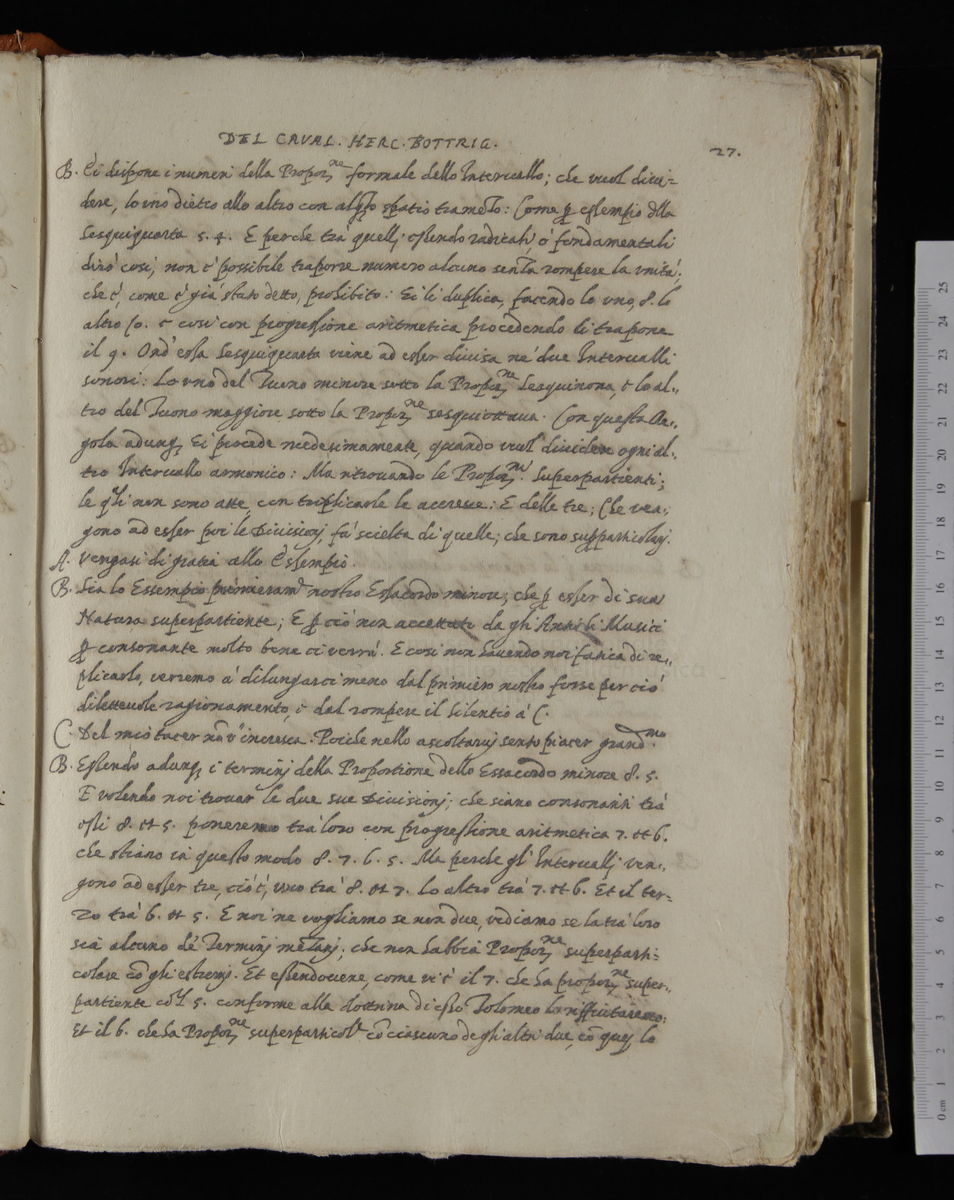 DEL CAVAL. HERC. BOTTRIG.
27.
B. Ei dispone i numeri della Propor.ne formale dello Intervallo; che vuol divi-
dere, lo uno dietro allo altro con spatio tramezo: Come ꝑ essempio della
Sesquiquarta 5. 4. E perche trà quelli essendo radicali, ò fondamentali
dirò cosi, non è possibile traporre numero alcuno senza rompere la unità;
che è, come è già stato detto, prohibito: Ei li duplica, facendo lo uno, 8. lo
altro 10. e cosi con progressione aritmetica procedendo li trapone
il 9. Ond'essa Sesquiquarta viene ad esser divisa ne' due Intervalli
sonori: Lo uno del Tuono minore sotto la Propor.ne Sesquinona, e lo al-
tro del Tuono maggiore sotto la Propor.ne sesquiottava. Con questa Re-
gola adunq; Ei procede medesimamente, quando vuol dividere ogni al-
tro Intervallo armonico: Ma ritrovando le Propor.ni superpartienti;
le qli non sono atte, con triplicarle le accresce: E delle tre; Che ven-
gono ad esser poi le Divisionj fà scielta di quelle; che sono supparticolarj.
A. Vengasi di gratia allo Essempio.
B. Sia lo Essempio primieram.te nostro Essacordo minore; che ꝑ esser di sua
Natura superpartiente; E ꝑ ciò non accettato da gli Antichi Musici
ꝑ consonante molto bene ci verrà. E cosi non havendo noi fatica di re-
plicarlo, verremo à dilungarci meno dal primiero nostro forse per ciò
dilettevole ragionamento, è dal rompere il silentio à C.
C. Del mio tacer nõ v'incresca. Poiche nello ascoltarvj sento piacer grand.mo
B. Essendo adunq; i terminj della Proportione dello Essacordo minore 8. 5.
E volendo noi trovar le due sue Divisionj; che siano consonanti trà
essi 8. et 5. poneremo trà loro con progressione aritmetica 7. et 6.
che stiano in questo modo 8. 7. 6. 5. Ma perche gl'Intervallj ven-
gono ad esser tre, ciò è, uno trà 8. et 7. lo altro trà 7. et 6. Et il ter-
zo trà 6. et 5. E noi ne vogliamo se non due, vediamo se la trà loro
sia alcuno de' Terminj mezanj; che non habbia Propor.ne superparti-
colare cõ gli estremj. Et essendovene, come vi è il 7. che ha propor.ne super-
partiente col 5. conforme alla dottrina di esso Tolomeo lo rifiutaremo:
Et il 6. che ha Propor.ne superparticol.e cõ ciascuno de gli altri due, cõ quej lo